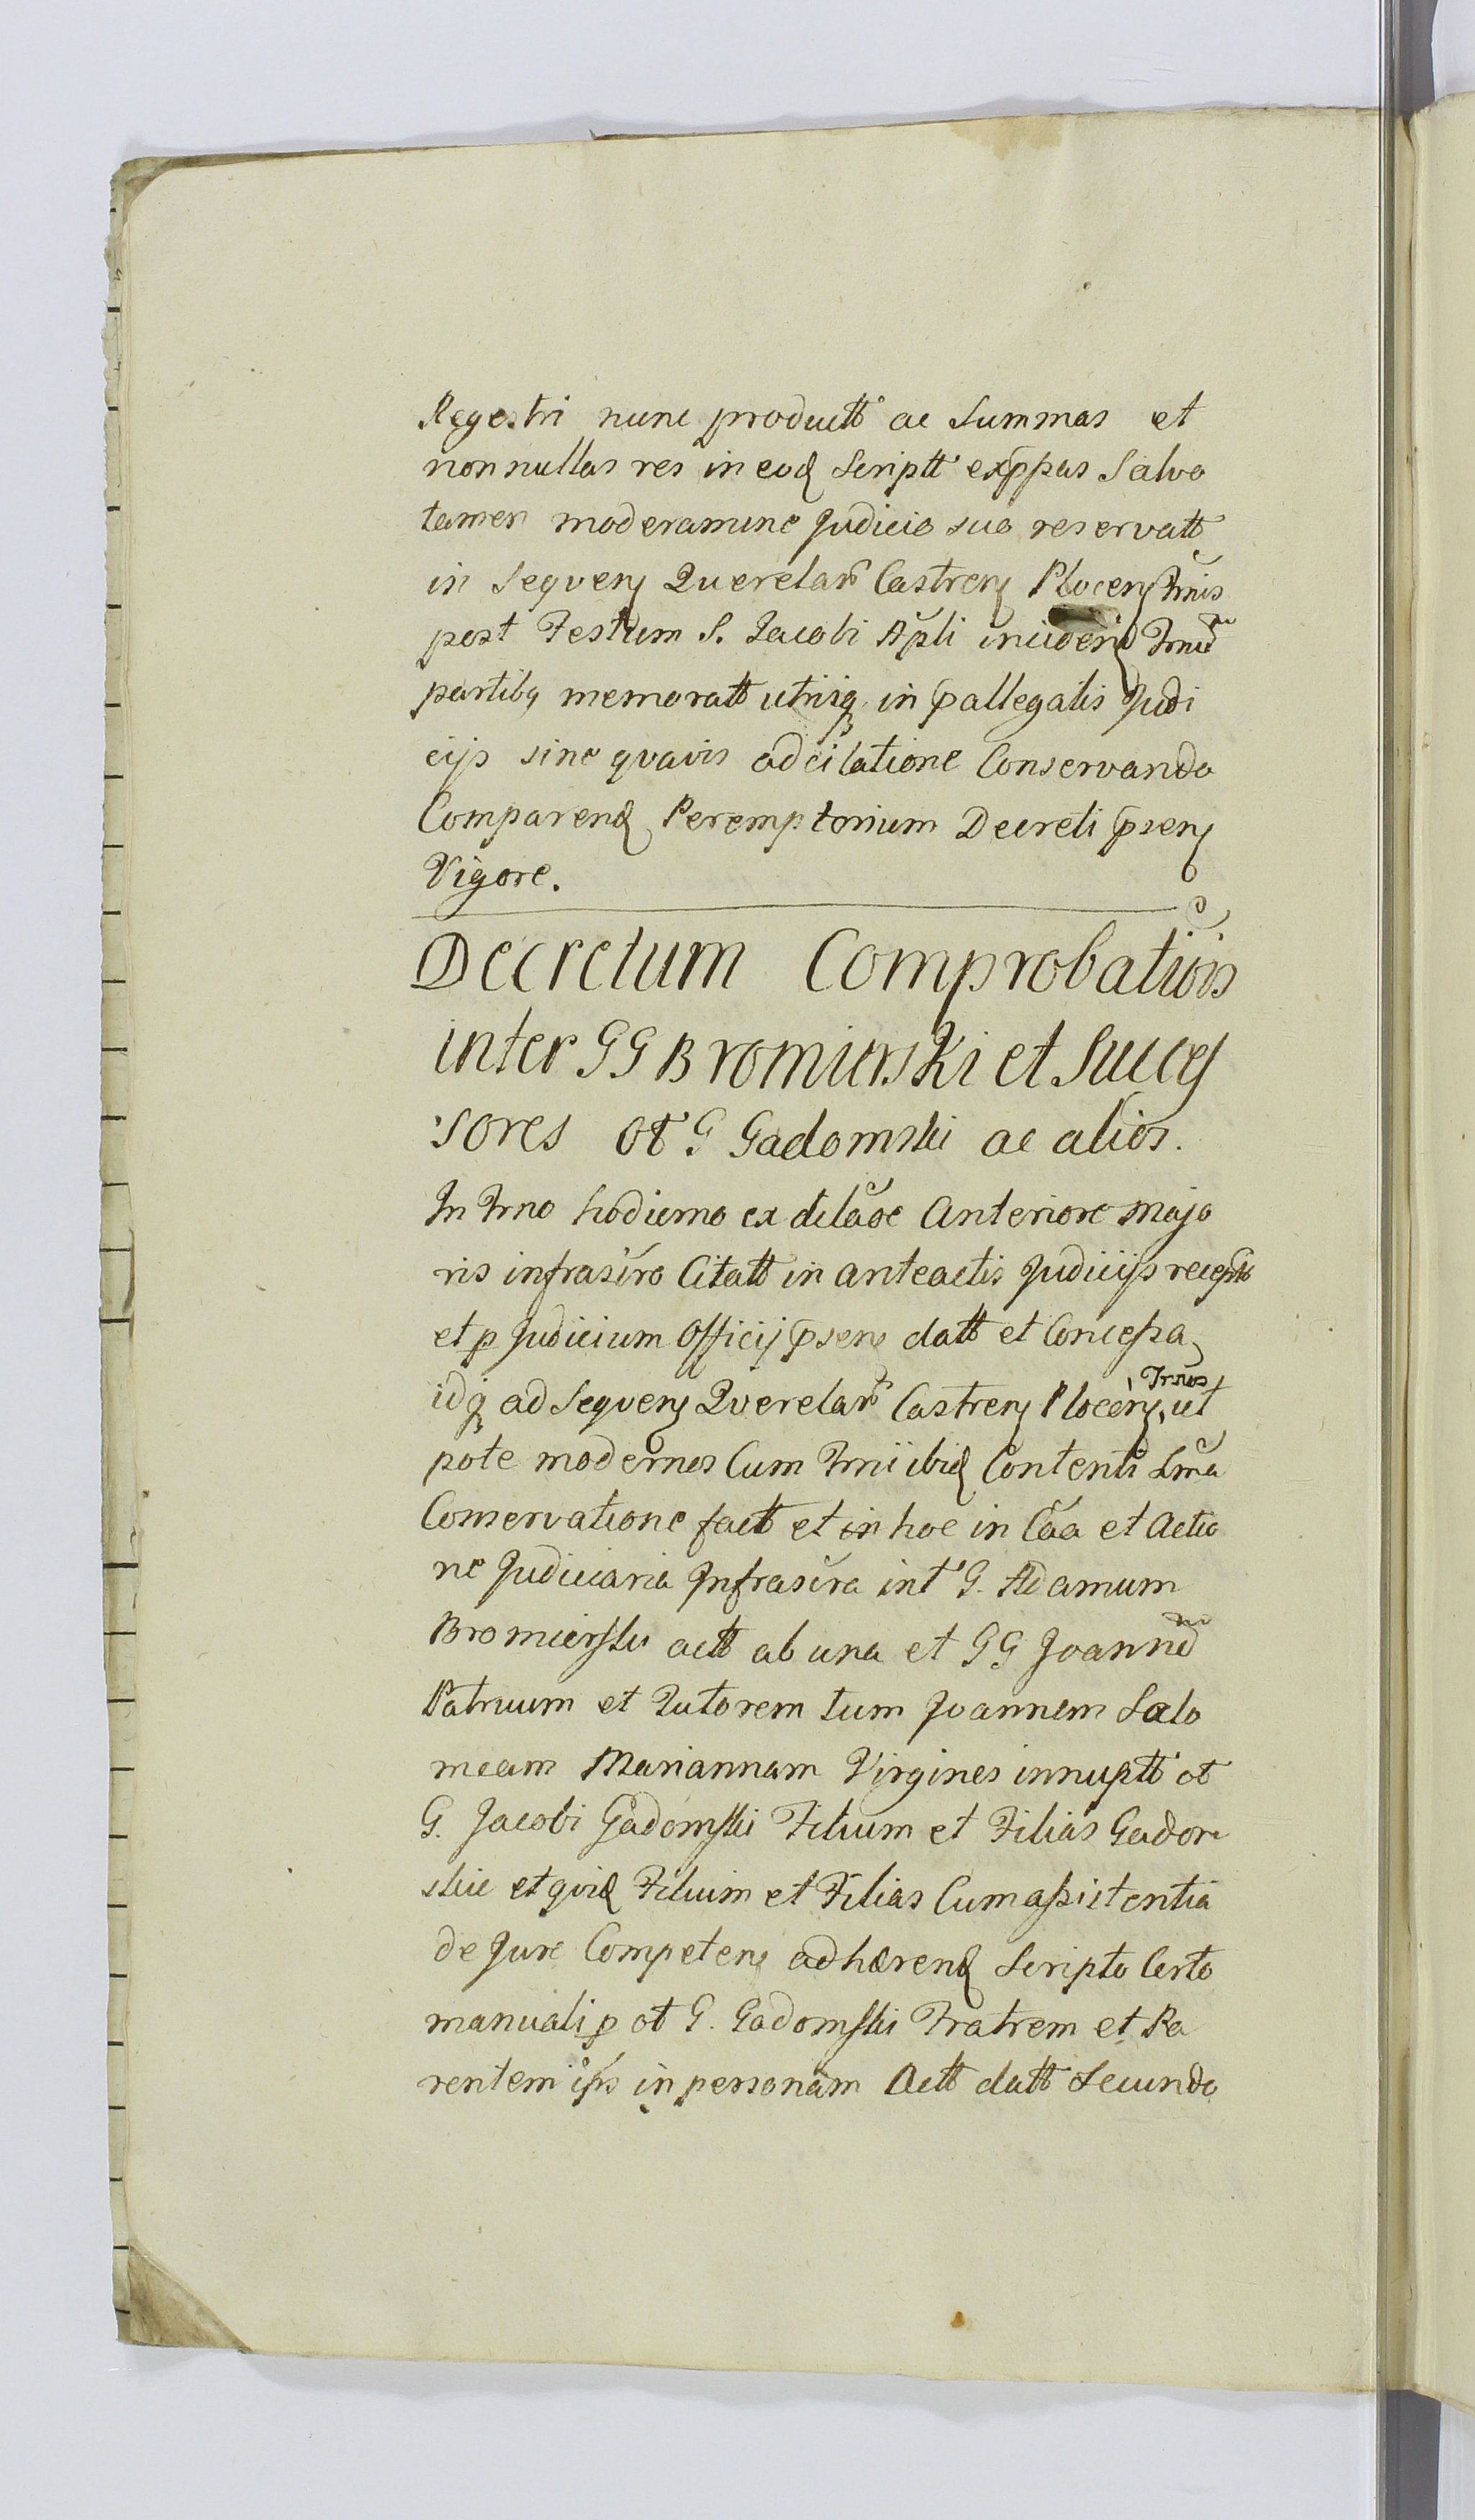 Regestri nunc productt ac Summas et
nonnullas res in eod Scriptt exppas Salvo
tamen moderamine Judicio suo reservatt
in Sequen Querelar Castren Plocen Trnis
post Festum S. Jacobi Apli inciden Trnu
partibq memoratt utrisq in pallegatis Judi
cijs sine quavis adcitatione Conservando
Comparend Peremptorium Decreti psen
Vigore.
Decretum Comprobatiois
inter GG Bromierski et Succes
sores ot G Gadomski ac alios.
In Trno hodierno ex dilaoe Anteriore Majo
ris infrascro Citatt in anteactis Judicijs recept
et p Judicium Officij psen datt et Concessa
idq ad Sequen Querelar Castren Plocen Trnos ut
pote modernos Cum Trnii ibid Contenti Lima
Conservatione factt et in hoc in Caa et Actio
ne Judiciaria Infrascra int G. Adamum
Bromierski actt ab una et GG Joanne
Patruum et Tutorem tum Joannem Salo
meam Mariannam Virgines innuptt ot
G. Jacobi Gadomski Filium et Filias Gadom
skie et quid Filium et Filias Cum assistentia
de Jure Competen adhærend Scripto Certo
manuali p ot G. Gadomski Fratrem et Pa
rentem ips in personam Actt datt Secundo